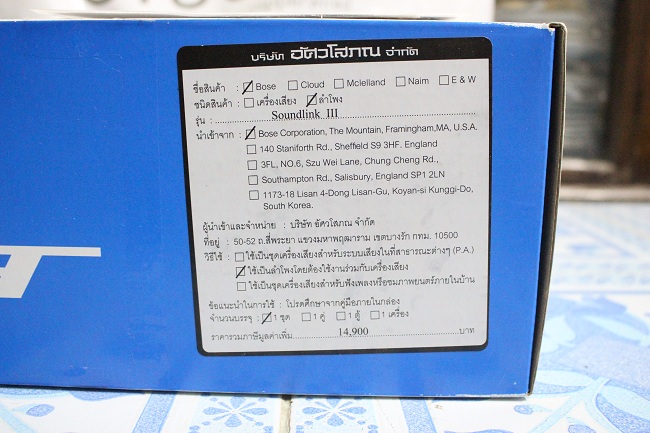 บริษัท อัศวโสภณ จำกัด
ชื่อสินค้า : ☑ Bose ☐ Cloud ☐ Mclelland ☐ Naim ☐ E & W
ชนิดสินค้า : ☐ เครื่องเสียง ☑ ลำโพง
รุ่น : Soundlink III
นำเข้าจาก : ☑ Bose Corporation, The Mountain, Framingham,MA, U.S.A.
☐ 140 Staniforth Rd., Sheffield S9 3HF. England
☐ 3FL, NO.6, Szu Wei Lane, Chung Cheng Rd.,
☐ Southampton Rd., Salisbury, England SP1 2LN
☐ 1173-18 Lisan 4-Dong Lisan-Gu, Koyan-si Kunggi-Do,
South Korea.
ผู้นำเข้าและจำหน่าย : บริษัท อัศวโสภณ จำกัด
ที่อยู่ : 50-52 ถ.สี่พระยา แขวงมหาพฤฒาราม เขตบางรัก กทม. 10500
วิธีใช้ : ☐ ใช้เป็นชุดเครื่องเสียงสำหรับระบบเสียงในที่สาธารณะต่างๆ (P.A.)
☑ ใช้เป็นลำโพงโดยต้องใช้งานร่วมกับเครื่องเสียง
☐ ใช้เป็นชุดเครื่องเสียงสำหรับฟังเพลงหรือชมภาพยนตร์ภายในบ้าน
ข้อแนะนำในการใช้ : โปรดศึกษาจากคู่มือภายในกล่อง
จำนวนบรรจุ : ☑ 1 ชุด ☐ 1 คู่ ☐ 1 ตู้ ☐ 1 เครื่อง
ราคารวมภาษีมูลค่าเพิ่ม 14,900 บาท